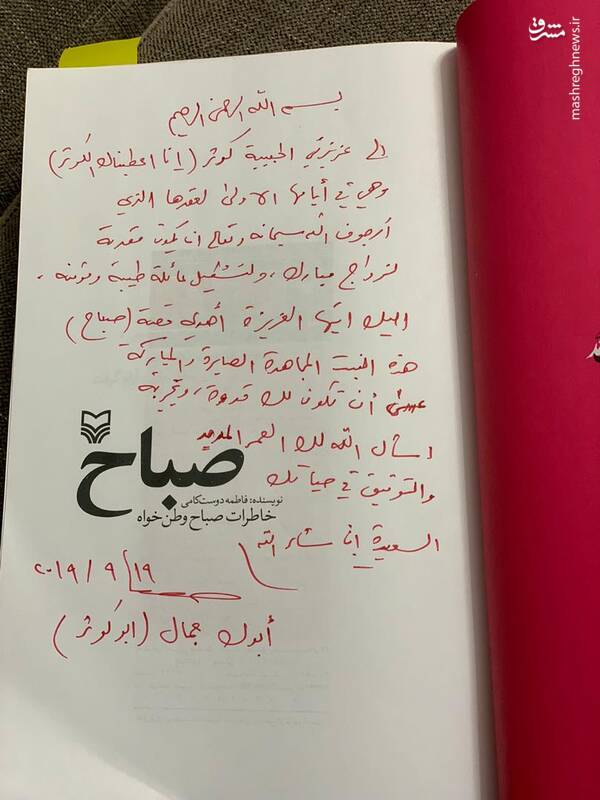 مشرق
mashreghnews.ir
بسم الله الرحمن الرحيم
الى عزيزتي الحبيبة كوثر (إنا اعطيناك الكوثر)
وهي في أيامها الاولى لعقدها الذي
أرجو من الله سبحانه وتعالى ان يكون مقدمة
لزواج مبارك، ولتشكيل عائلة طيبة ومؤمنة،
اليك ايتها العزيزة أهدي قصة (صباح)
هذه البنت المجاهدة الصابرة والمباركة
عسى أن تكون لك قدوة، وتجربة
اسأل الله لك العمر المديد
والتوفيق في حياتك
السعيدة إن شاء الله
صباح
نویسنده: فاطمه دوست‌کامی
خاطرات صباح وطن‌خواه
١٩/٩/٢٠١٩
أبوك جمال (ابو كوثر)